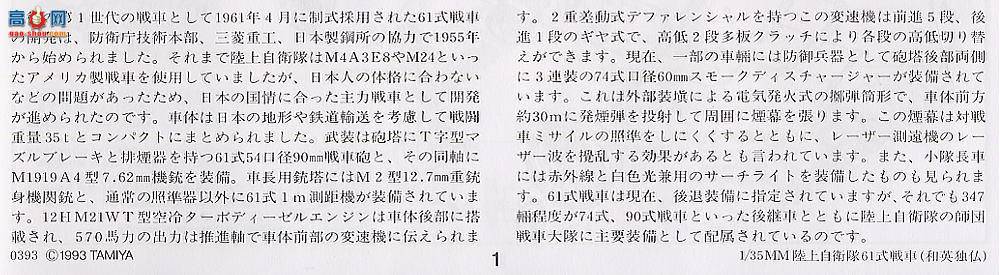 高网
www.gao5u.com
第1世代の戦車として1961年4月に制式採用された61式戦車
の開発は、防衛庁技術本部、三菱重工、日本製鋼所の協力で1955年
から始められました。それまで陸上自衛隊はM4A3E8やM24といっ
たアメリカ製戦車を使用していましたが、日本人の体格に合わない
などの問題があったため、日本の国情に合った主力戦車として開発
が進められたのです。車体は日本の地形や鉄道輸送を考慮して戦闘
重量35tとコンパクトにまとめられました。武装は砲塔にT字型マ
ズルブレーキと排煙器を持つ61式54口径90mm戦車砲と、その同軸に
M1919A4型7.62mm機銃を装備。車長用銃塔にはM2型12.7mm重銃
身機関銃と、通常の照準器以外に61式1m測距機が装備されていま
す。12HM21WT型空冷ターボディーゼルエンジンは車体後部に搭
載され、570馬力の出力は推進軸で車体前部の変速機に伝えられま
す。2重差動式デファレンシャルを持つこの変速機は前進5段、後
進1段のギヤ式で、高低2段多板クラッチにより各段の高低切り替
えができます。現在、一部の車輛には防御兵器として砲塔後部両側
に3連装の74式口径60mmスモークディスチャージャーが装備されて
います。これは外部装塡による電気発火式の擲弾筒形で、車体前方
約30mに発煙弾を投射して周囲に煙幕を張ります。この煙幕は対戦
車ミサイルの照準をしにくくするとともに、レーザー測遠機のレー
ザー波を攪乱する効果があるとも言われています。また、小隊長車
には赤外線と白色光兼用のサーチライトを装備したものも見られま
す。61式戦車は現在、後退装備に指定されていますが、それでも347
輛程度が74式、90式戦車といった後継車とともに陸上自衛隊の師団
戦車大隊に主要装備として配属されているのです。
0393 ©1993 TAMIYA
1
1/35MM陸上自衛隊61式戦車(和英独仏)